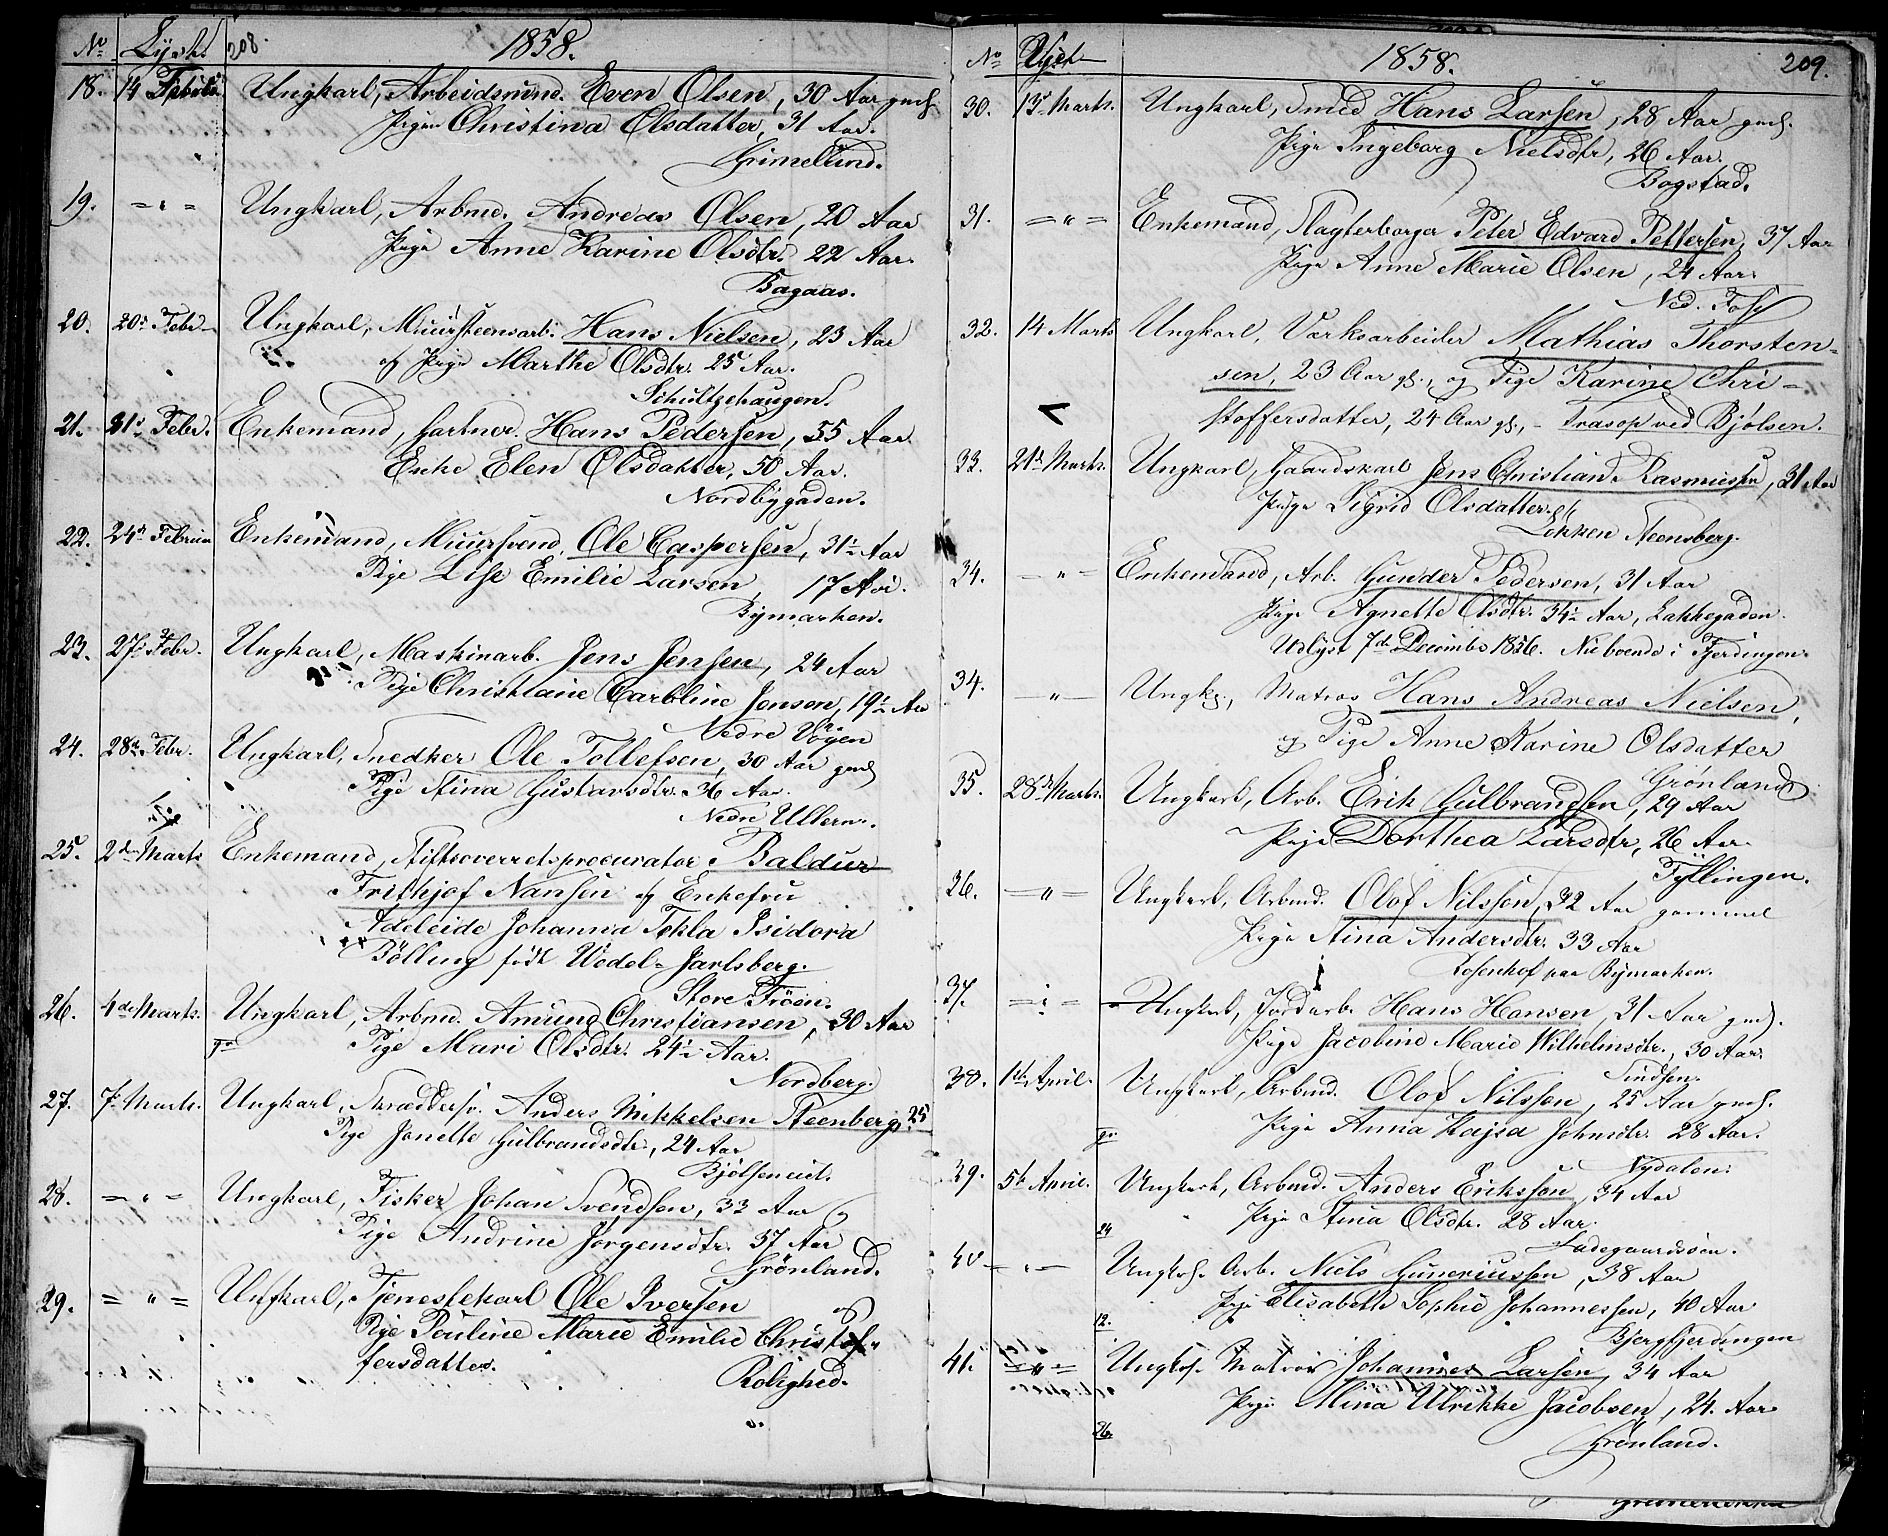 No Lyst. 208. 1858.
18. 14 Februar Ungkarl, Arbeidsmnd. Even Olsen, 30 Aar gml.
Pigen Christina Olsdatter, 31 Aar.
Grimelund.
19. = " = Ungkarl, Arbmd. Andreas Olsen, 20 Aar
Pige Anne Karine Olsdtr. 22 Aar.
Bagaas.
20. 20de Febr. Ungkarl, Muursteensarb. Hans Nielsen, 23 Aar
og Pige Marthe Olsdtr. 25 Aar.
Schultzehaugen.
21. 21de Febr. Enkemand, Gartner. Hans Pedersen, 55 Aar
Enke Elen Olsdatter, 50 Aar.
Nordbygaden.
22. 24de Februar Enkemand, Muursvend, Ole Caspersen, 31½ Aar
Pige Lise Emilie Larsen, 17 Aar.
Bymarken.
23. 27de Febr. Ungkarl, Maskinarb. Jens Jensen, 24 Aar
Pige Christiane Caroline Jensen, 19½ Aar
Nedre Vøyen
24. 28de Febr. Ungkarl, Snedker Ole Tollefsen, 30 Aar gml
Pige Stina Gustavsdtr. 36 Aar.
Nedre Ullern.
25. 2den Marts Enkemand, Stiftsoverretsprocurator Baldur
Frithjof Nansen og Enkefru
Adeleide Johanna Tekla Isidora
Bölling født Wedel-Jarlsberg.
Store Frøen.
26. 4de Marts. Ungkarl, Arbmd. Amund Christiansen, 30 Aar
Pige Mari Olsdtr. 24½ Aar.
Nordberg.
27. 7de Marts. Ungkarl, Skræddersv. Anders Mikkelsen Steenberg, 25
Pige Jonette Gulbrandsdtr., 24 Aar
Bjølseneiet.
28. = " = Ungkarl, Fisker Johan Svendsen, 33 Aar
Pige Andrine Jørgensdtr. 37 Aar
Grønland.
29. = " = Ungkarl, Tjenestekarl Ole Iversen og
Pige Pauline Marie Emilie Christof-
fersdatter.
Rolighed.
No Lyst 1858. 209.
30. 13de Marts. Ungkarl, Smed Hans Larsen, 28 Aar gml.
Pige Ingeborg Nielsdtr, 26 Aar.
Bogstad.
31. = " = Enkemand, Slagterborger Peter Edvard Pettersen, 37 Aar
Pige Anne Marie Olsen, 24 Aar.
Ned. Foss
32. 14 Marts Ungkarl, Værksarbeider Mathias Thorsten-
sen, 23 Aar gl., og Pige Karine Chri-
stoffersdatter, 24 Aar gl., - Trasop ved Bjølsen.
33. 21de Marts. Ungkarl, Gaardskarl Jens Christian Rasmussen, 31 Aar
Pige Sigrid Olsdatter
Løkken Steensberg.
34. = " = Enkemand, Arb. Gunder Pedersen, 31 Aar
Pige Agnette Olsdtr. 34½ Aar, Lakkegaden.
Udlyst 7de Decembr 1856. Nu boende i Fjerdingen.
34. — " — Ungk., Matros Hans Andreas Nielsen,
og Pige Anne Karine Olsdatter
Grønland
35. 28de Marts. Ungkarl, Arb. Erik Gulbrandsen, 29 Aar
Pige Dorthea Larsdtr, 26 Aar.
Tyllingen.
36. — " — Ungkarl, Arbmd. Olof Nilssen, 32 Aar gammel
Pige Stina Andersdtr. 33 Aar
Rosenhof paa Bymarken.
37. = " = Ungkarl, Jordarb. Hans Hansen, 31 Aar gml.
Pige Jacobine Marie Wilhelmsdtr., 30 Aar.
38. 1ste April. Ungkarl, Arbmd. Olof Nilssen, 25 Aar gml.
Pige Anna Kajsa Johnsdtr. 28 Aar.
Nydalen.
39. 5te April. Ungkarl, Arbmd. Anders Eriksson, 34 Aar
Pige Stina Olsdtr. 28 Aar.
24 Ladegaardsøen.
40 — " — Ungkrl. Arb. Niels Guneriussen, 38 Aar
Pige Elisabeth Sophie Johannessen, 40 Aar
12. Bjergfjerdingen
41. = " = Ungkrl. Matros Johannes Larsen, 34 Aar
Pige Mina Ulrikke Jacobsen, 24. Aar
26. Grønland.